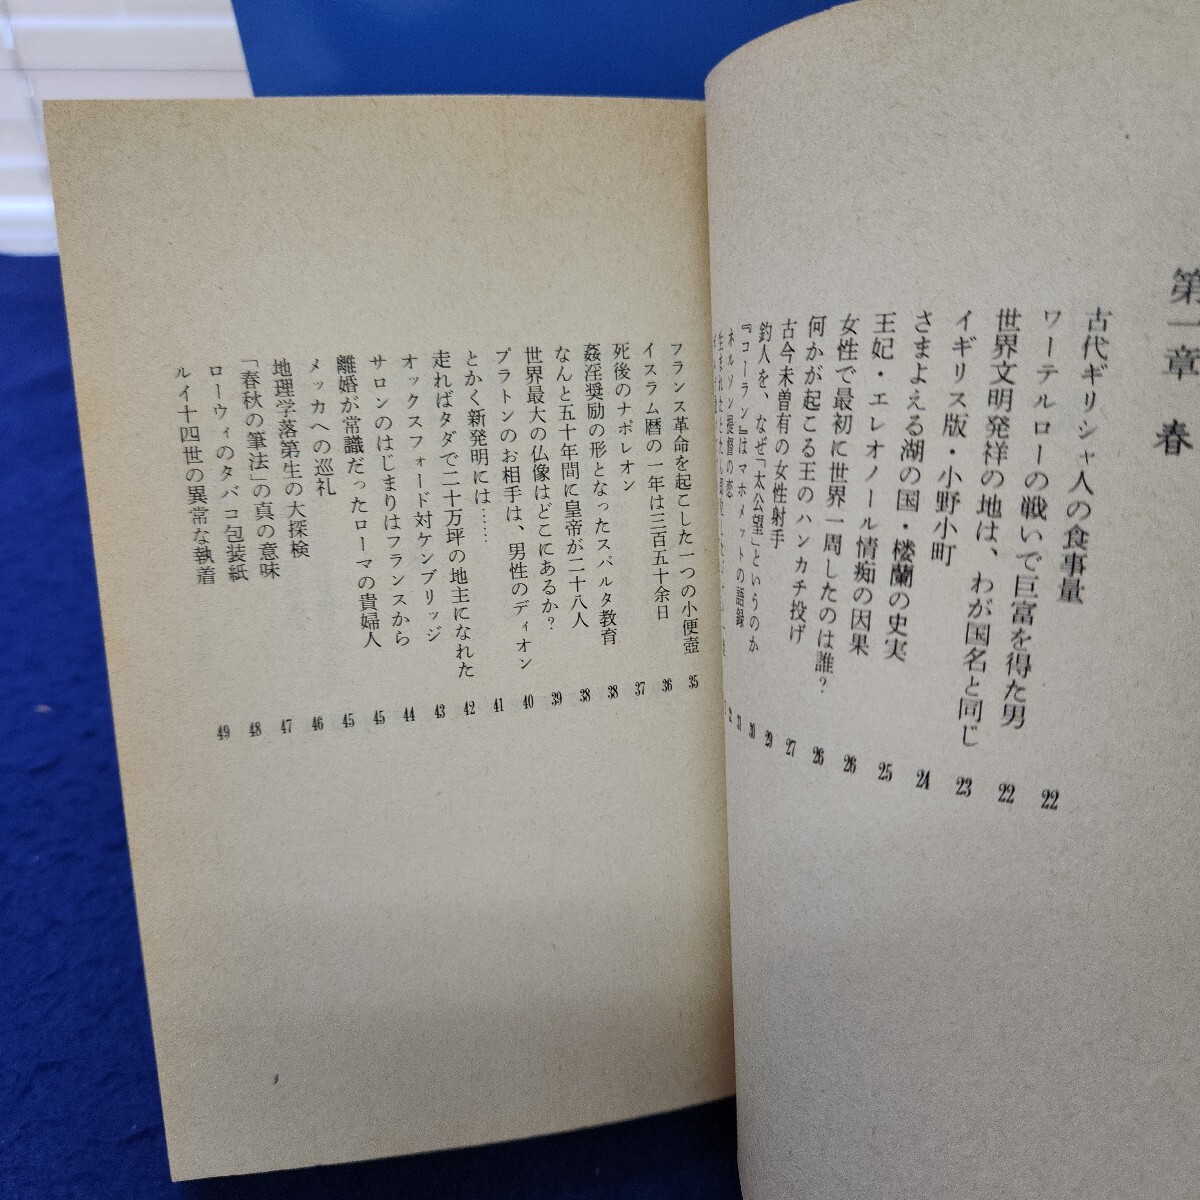 第一章 春
古代ギリシャ人の食事量 22
ワーテルローの戦いで巨富を得た男 22
世界文明発祥の地は、わが国名と同じ 23
イギリス版・小野小町 24
さまよえる湖の国・楼蘭の史実 25
王妃・エレオノール情痴の因果 26
女性で最初に世界一周したのは誰? 26
何かが起こる王のハンカチ投げ 27
古今未曽有の女性射手 29
釣人を、なぜ「太公望」というのか 30
『コーラン』はマホメットの語録 31
ネルソン提督の恋
フランス革命を起こした一つの小便壺 35
イスラム暦の一年は三百五十余日 36
死後のナポレオン 37
姦淫奨励の形となったスパルタ教育 38
なんと五十年間に皇帝が二十八人 38
世界最大の仏像はどこにあるか? 39
プラトンのお相手は、男性のディオン 40
とかく新発明には…… 41
走ればタダで二十万坪の地主になれた 42
オックスフォード対ケンブリッジ 43
サロンのはじまりはフランスから 44
離婚が常識だったローマの貴婦人 45
メッカへの巡礼 45
地理学落第生の大探検 46
「春秋の筆法」の真の意味 47
ローウィのタバコ包装紙 48
ルイ十四世の異常な執着 49